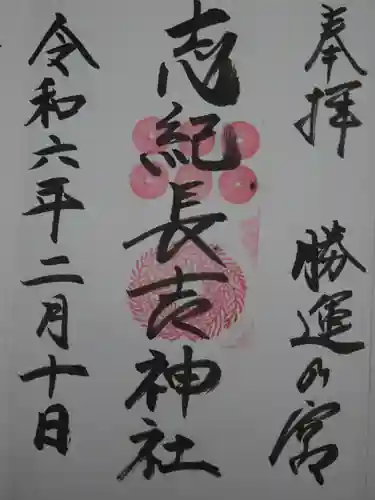 奉拝　勝運の宮
志紀長吉神社
令和六年二月十日